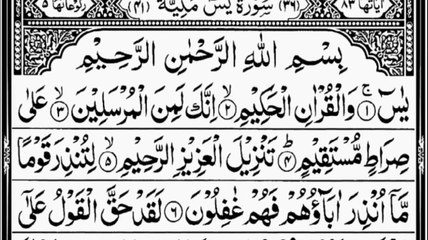 اٰیاتها ٨٣ (٣٦) سُوْرَةُ یٰسٓ مَكِّیَّةٌ (٤١) رکوعاتها ٥
بِسْمِ اللّٰهِ الرَّحْمٰنِ الرَّحِیْمِ
یٰسٓ ۚ﴿١﴾ وَالْقُرْاٰنِ الْحَكِیْمِ ۙ﴿٢﴾ اِنَّكَ لَمِنَ الْمُرْسَلِیْنَ ۙ﴿٣﴾ عَلٰی
صِرَاطٍ مُّسْتَقِیْمٍ ؕ﴿٤﴾ تَنْزِیْلَ الْعَزِیْزِ الرَّحِیْمِ ۙ﴿٥﴾ لِتُنْذِرَ قَوْمًا
مَّاۤ اُنْذِرَ اٰبَآؤُهُمْ فَهُمْ غٰفِلُوْنَ ﴿٦﴾ لَقَدْ حَقَّ الْقَوْلُ عَلٰۤی